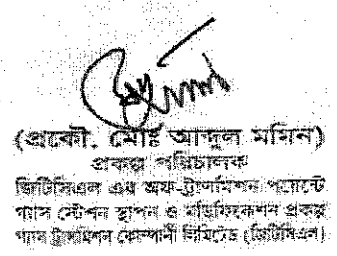 (প্রকৌ. মোঃ আব্দুল মমিন)
প্রকল্প পরিচালক
জিটিসিএল এর অফ-ট্রান্সমিশন পয়েন্টে
গ্যাস স্টেশন স্থাপন ও মডিফিকেশন প্রকল্প
গ্যাস ট্রান্সমিশন কোম্পানী লিমিটেড (জিটিসিএল)